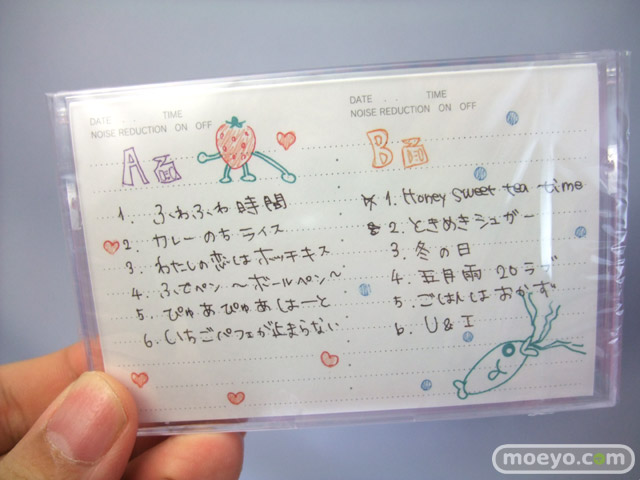 DATE . . TIME
NOISE REDUCTION ON OFF
A面
1. ふわふわ時間
2. カレーのちライス
3. わたしの恋はホッチキス
4. ふでペン ～ボールペン～
5. ぴゅあぴゅあはーと
6. いちごパフェが止まらない
DATE . . TIME
NOISE REDUCTION ON OFF
B面
1. Honey sweet tea time
2. ときめきシュガー
3. 冬の日
4. 五月雨 20 ラブ
5. ごはんはおかず
6. U & I
moeyo.com